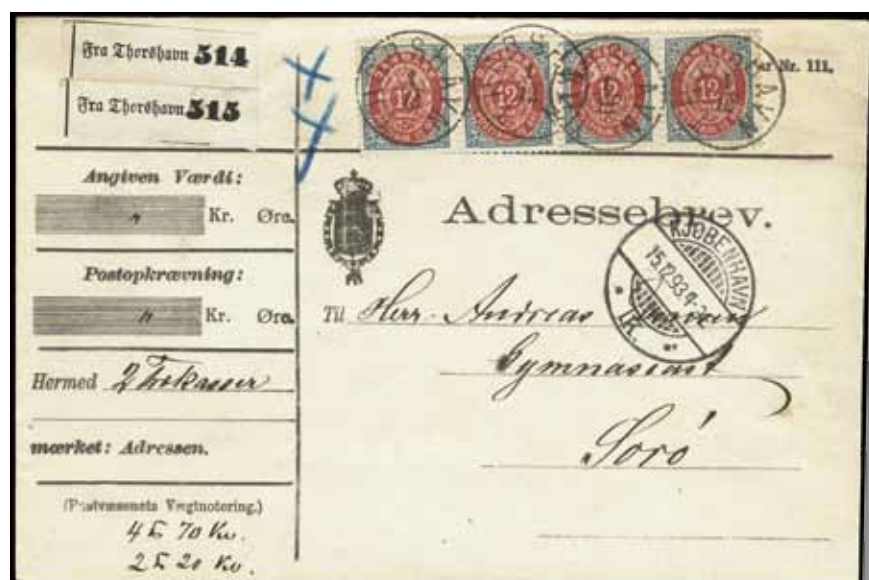 Fra Thorshavn 514
Fra Thorshavn 515
Nr. 111.
12 12 12 12
THORSHAVN
Angiven Værdi:
" Kr. Øre.
Postopkrævning:
" Kr. Øre.
Hermed 2 Trækasser
mærket: Adressen.
(Postvæsenets Vægtnotering.)
4 ℔ 70 Kv.
2 ℔ 20 Kv.
Adressebrev.
KJØBENHAVN
15.12.93
K.
Til Herr Andreas
Gymnasiast
Sorö